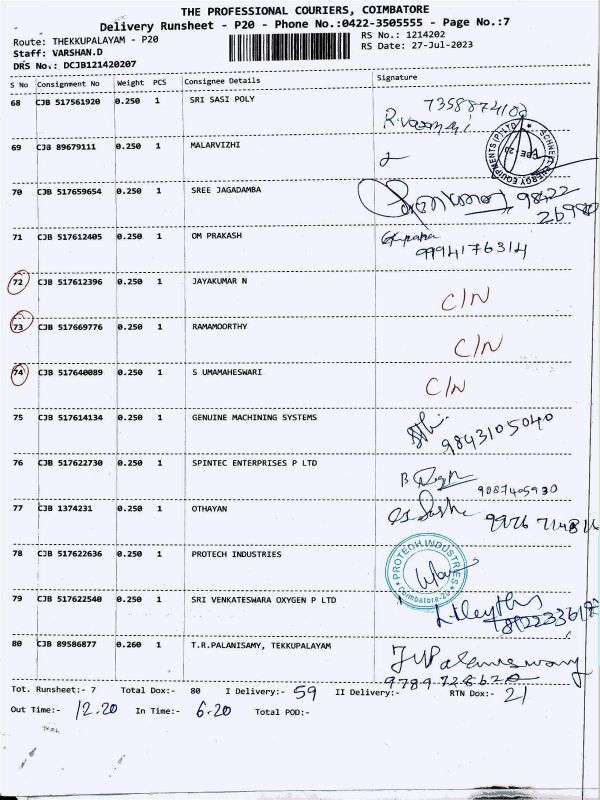 THE PROFESSIONAL COURIERS, COIMBATORE
Delivery Runsheet - P20 - Phone No.:0422-3505555 - Page No.:7
Route: THEKKUPALAYAM - P20 RS No.: 1214202
Staff: VARSHAN.D RS Date: 27-Jul-2023
DRS No.: DCJB121420207
S No Consignment No Weight PCS Consignee Details Signature
68 CJB 517561920 0.250 1 SRI SASI POLY
69 CJB 89679111 0.250 1 MALARVIZHI
70 CJB 517659654 0.250 1 SREE JAGADAMBA
71 CJB 517612405 0.250 1 OM PRAKASH 9994176314
72 CJB 517612396 0.250 1 JAYAKUMAR N C/N
73 CJB 517669776 0.250 1 RAMAMOORTHY C/N
74 CJB 517640089 0.250 1 S UMAMAHESWARI C/N
75 CJB 517614134 0.250 1 GENUINE MACHINING SYSTEMS 9843105040
76 CJB 517622730 0.250 1 SPINTEC ENTERPRISES P LTD 9087405930
77 CJB 1374231 0.250 1 OTHAYAN
78 CJB 517622636 0.250 1 PROTECH INDUSTRIES PROTECH INDUSTRIES
79 CJB 517622540 0.250 1 SRI VENKATESWARA OXYGEN P LTD
80 CJB 89586877 0.260 1 T.R.PALANISAMY, TEKKUPALAYAM
Tot. Runsheet:- 7 Total Dox:- 80 I Delivery:- 59 II Delivery:- RTN Dox:- 21
Out Time:- 12.20 In Time:- 6.20 Total POD:-